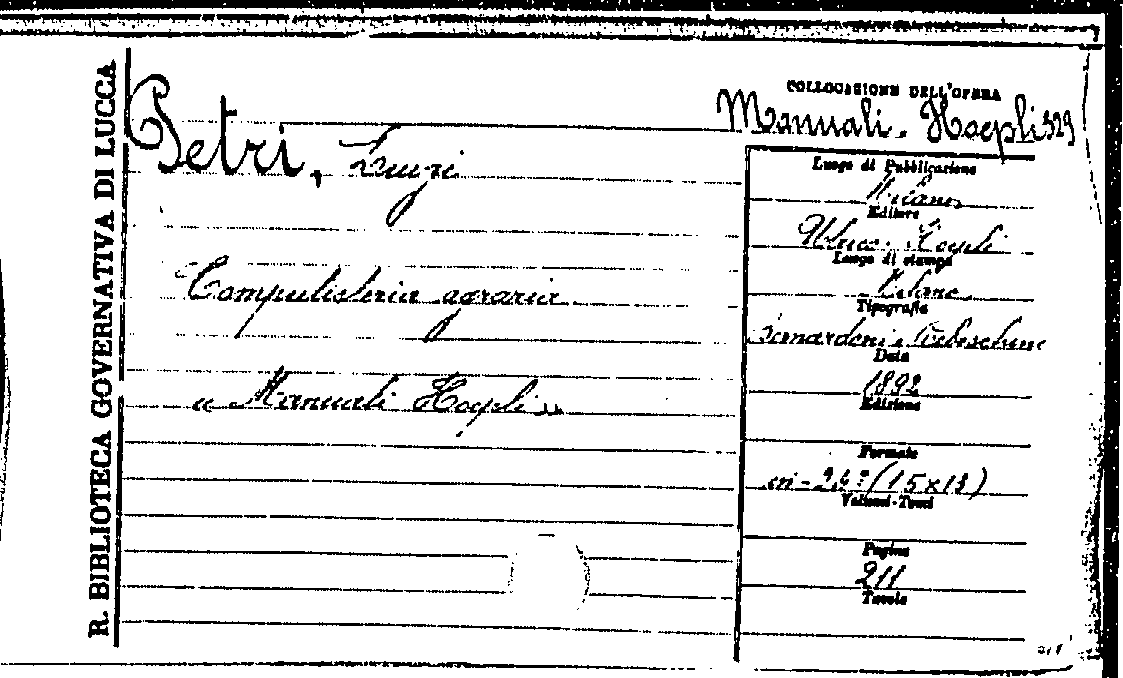 R. BIBLIOTECA GOVERNATIVA DI LUCCA
Petri, Luigi
Computisteria agraria
" Manuali Hoepli "
COLLOCAZIONE DELL'OPERA
Manuali. Hoepli 329
Luogo di Pubblicazione
Milano
Editore
Ulrico Hoepli
Luogo di stampa
Milano
Tipografia
Bernardoni e Rebeschini
Data
1892
Edizione
Formato
in-24° (15x
Volumi-Tomi
Pagine
211
Tavole